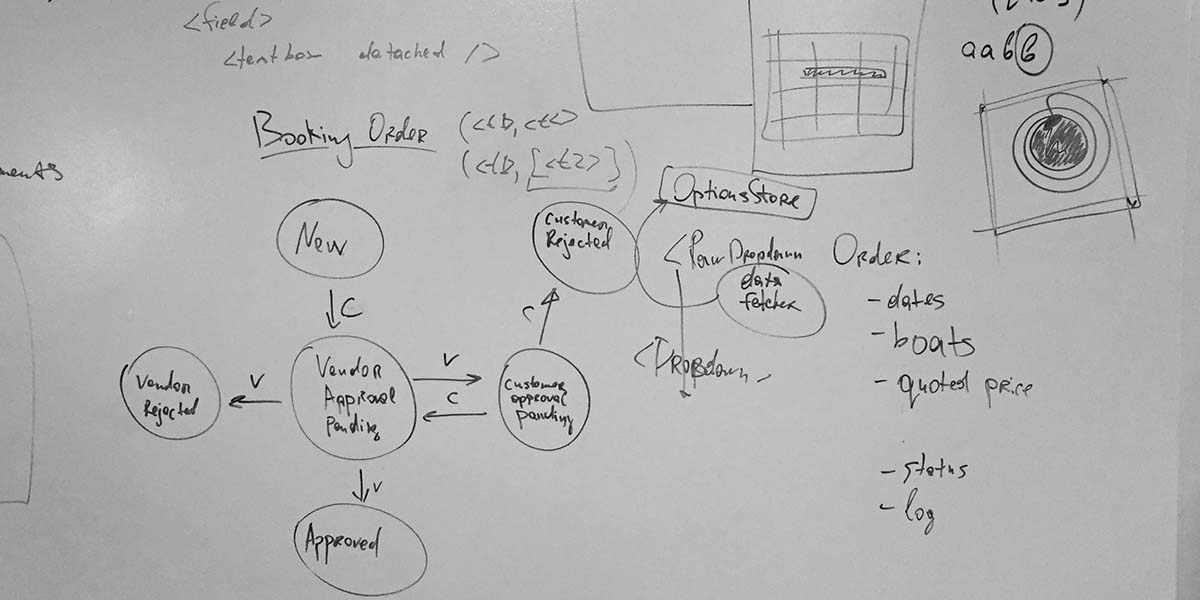 <field>
<textbox detached />
aabb
Booking Order
(<t1>, <t2>
(<t1>, [<t2>])
ments
OptionsStore
New
Customer
Rejected
<RawDropdown
data
fetcher
Order:
- dates
- boats
- quoted price
- status
- log
C
C
<Dropdown
Vendor
Rejected
V
Vendor
Approval
Pending
V
C
Customer
approval
pending
V
Approved